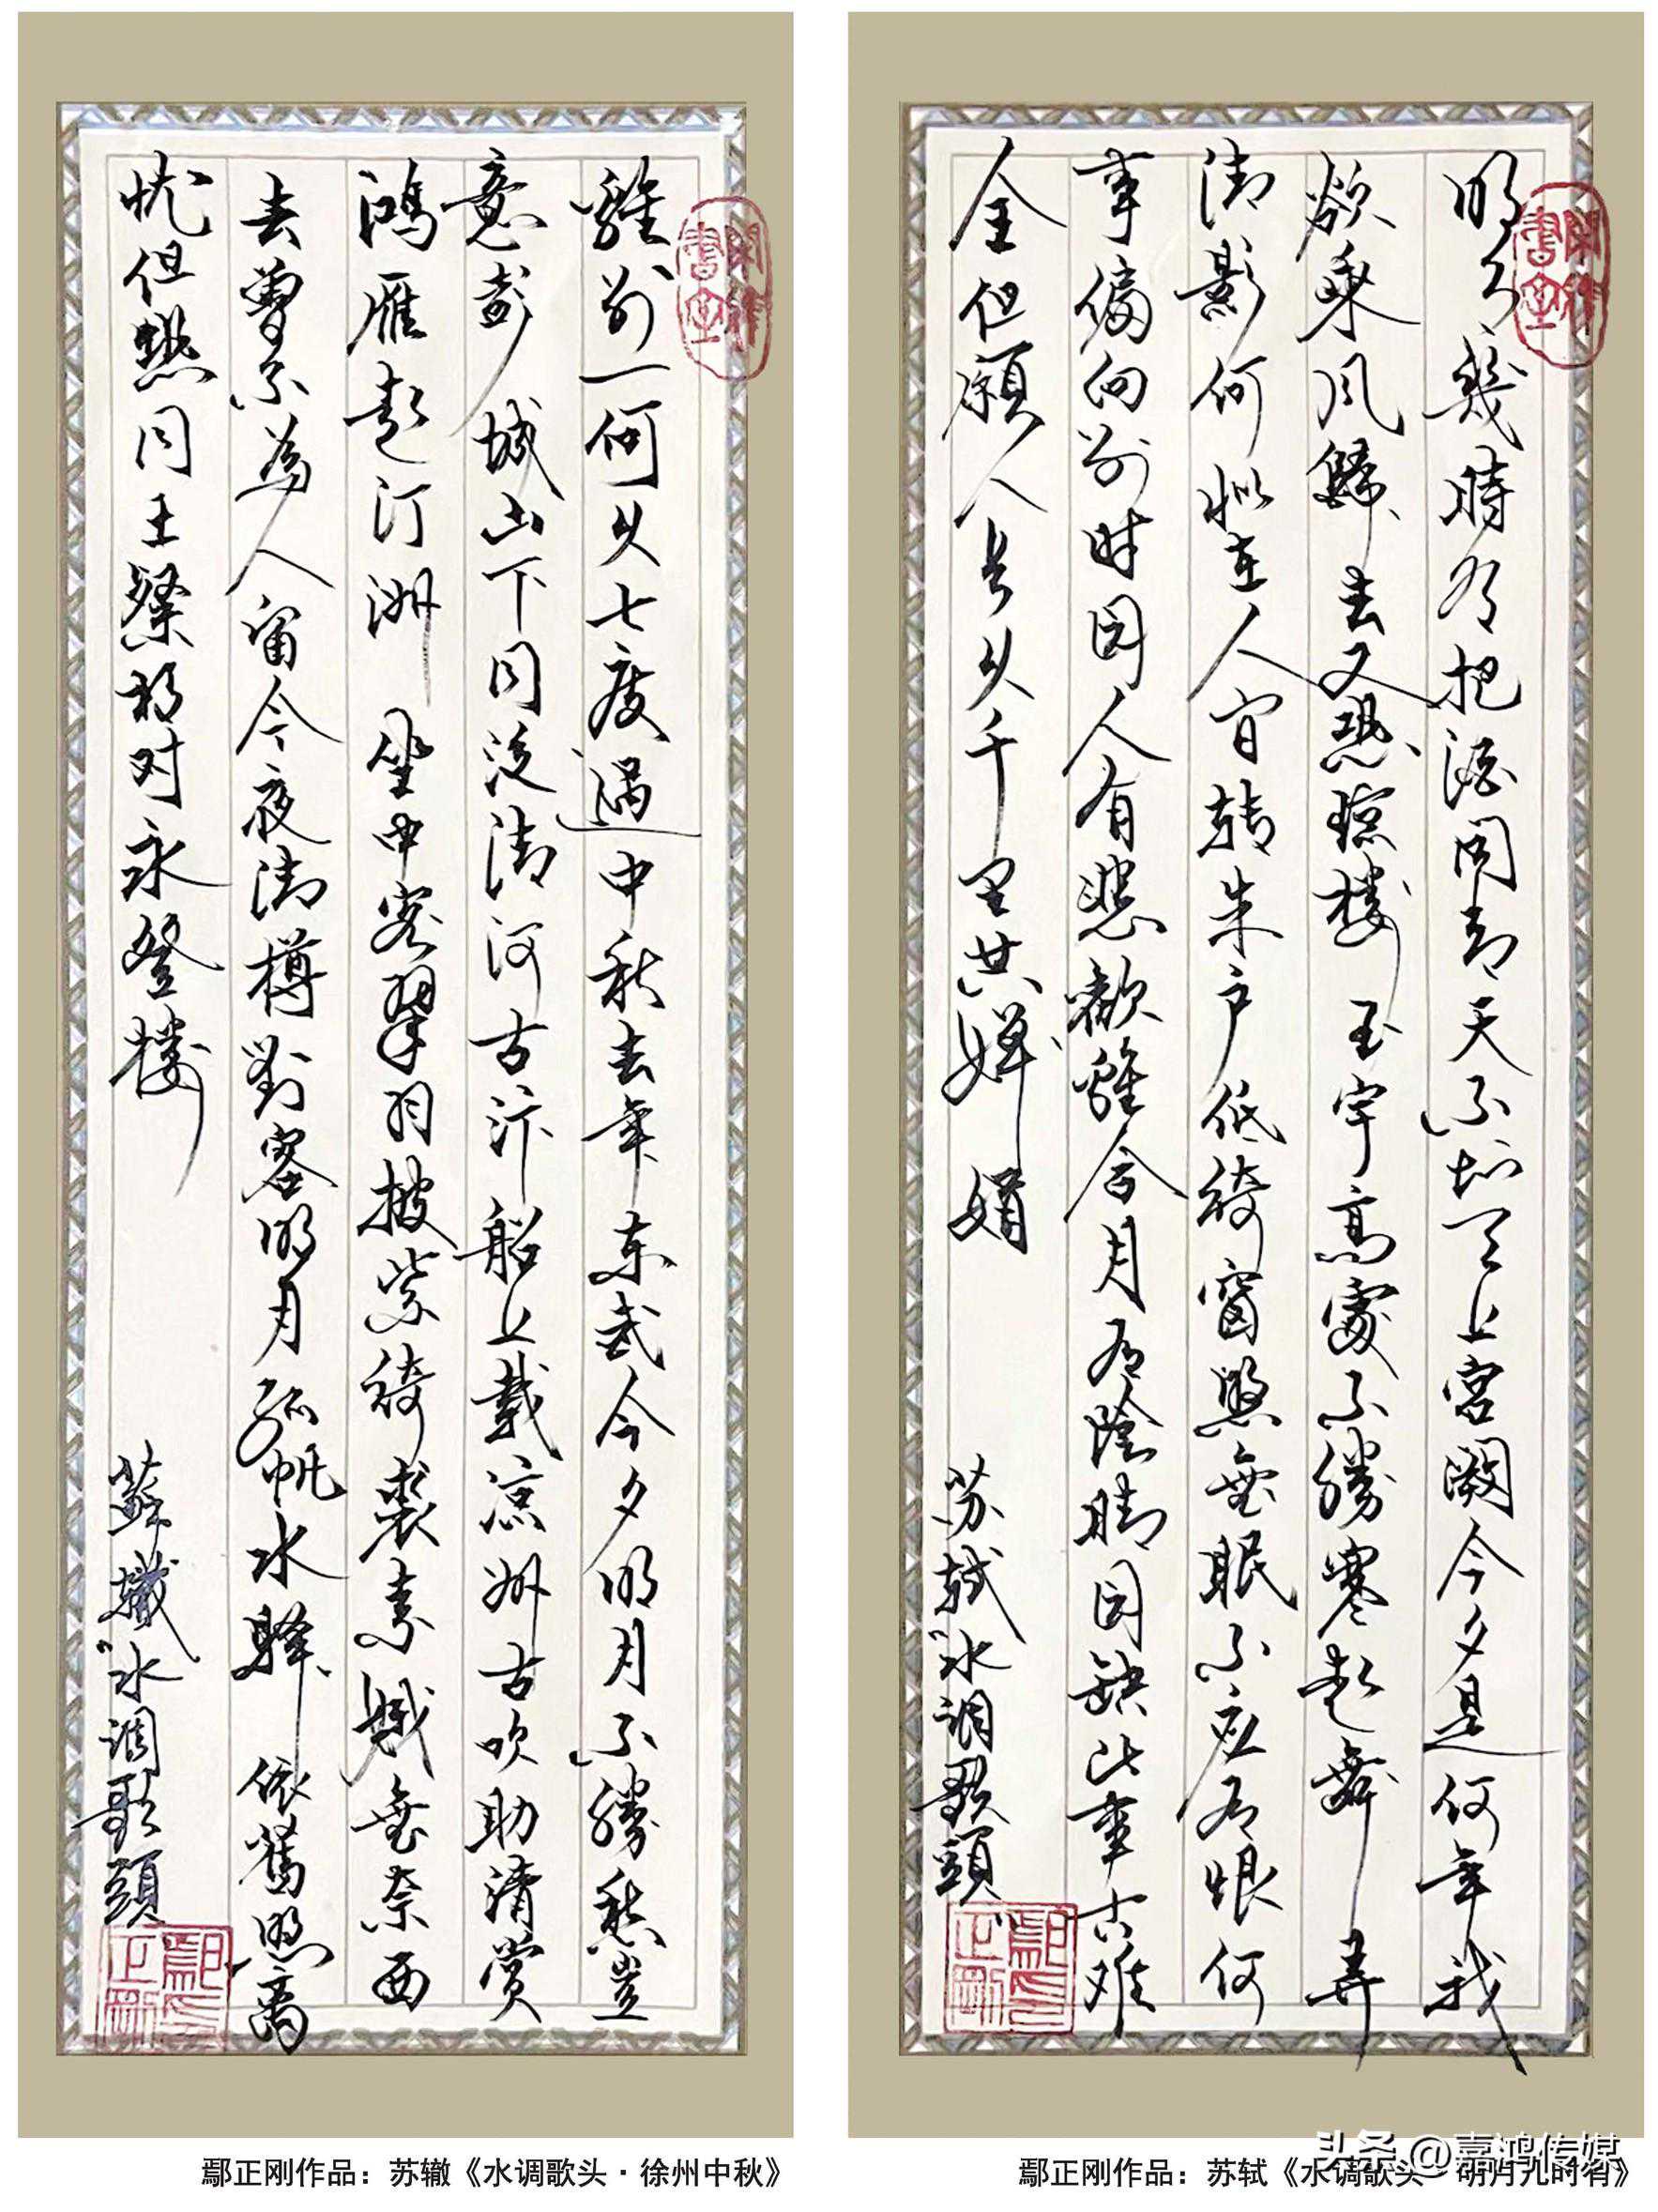 明月幾時有把酒问青天不知天上宫阙今夕是何年我
欲乘风歸去又恐琼楼玉宇高處不勝寒起舞弄
清影何似在人间转朱户低绮窗照無眠不应有恨何
事偏向别时圆人有悲歡離合月有陰晴圆缺此事古难
全但願人长久千里共嬋娟
苏轼水调歌頭
鄢正刚印
離别一何久七度過中秋去年东武今夕明月不勝愁豈
意彭城山下同泛清河古汴船上載凉州古吹助清賞
鴻雁起汀洲坐中客翠羽披紫绮裘素娥無奈西
去曾不為人留今夜清樽對客明月孤帆水驿依舊照离
忧但恐同王粲相对永登楼
蘇辙水调歌頭
鄢正刚印
鄢正刚作品：苏辙《水调歌头·徐州中秋》
鄢正刚作品：苏轼《水调歌头·明月几时有》
头条@嘉鸿传媒